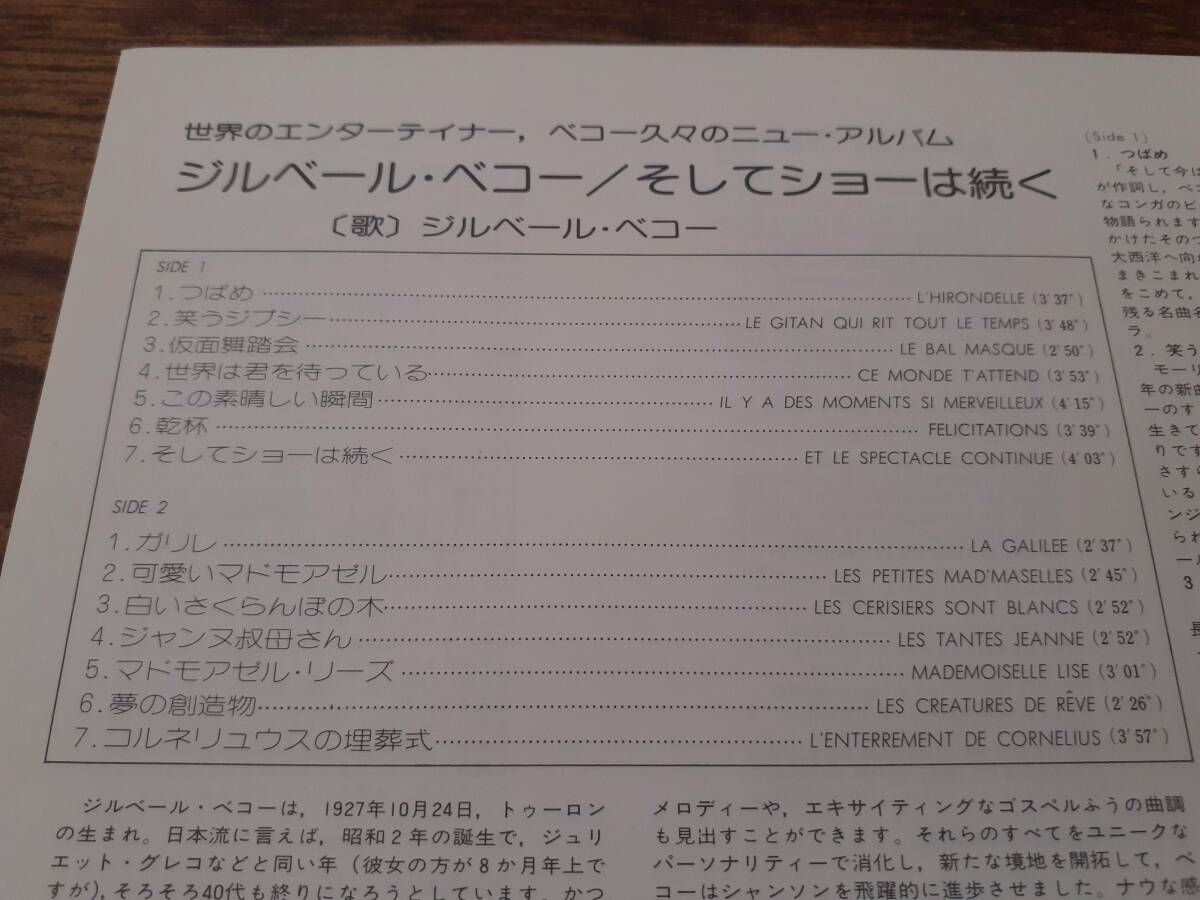 世界のエンターテイナー，ベコー久々のニュー・アルバム
ジルベール・ベコー／そしてショーは続く
〔歌〕ジルベール・ベコー
SIDE 1
1.つばめ L'HIRONDELLE (3'37")
2.笑うジプシー LE GITAN QUI RIT TOUT LE TEMPS (3'48")
3.仮面舞踏会 LE BAL MASQUE (2'50")
4.世界は君を待っている CE MONDE T'ATTEND (3'53")
5.この素晴しい瞬間 IL Y A DES MOMENTS SI MERVEILLEUX (4'15")
6.乾杯 FELICITATIONS (3'39")
7.そしてショーは続く ET LE SPECTACLE CONTINUE (4'03")
SIDE 2
1.ガリレ LA GALILEE (2'37")
2.可愛いマドモアゼル LES PETITES MAD'MASELLES (2'45")
3.白いさくらんぼの木 LES CERISIERS SONT BLANCS (2'52")
4.ジャンヌ叔母さん LES TANTES JEANNE (2'52")
5.マドモアゼル・リーズ MADEMOISELLE LISE (3'01")
6.夢の創造物 LES CREATURES DE RÊVE (2'26")
7.コルネリュウスの埋葬式 L'ENTERREMENT DE CORNELIUS (3'57")
ジルベール・ベコーは，1927年10月24日，トゥーロン
の生まれ。日本流に言えば，昭和２年の誕生で，ジュリ
エット・グレコなどと同い年（彼女の方が８か月年上で
すが），そろそろ40代も終りになろうとしています。かつ
メロディーや，エキサイティングなゴスペルふうの曲調
も見出すことができます。それらのすべてをユニークな
パーソナリティーで消化し，新たな境地を開拓して，ベ
コーはシャンソンを飛躍的に進歩させました。ナウな感
(Side 1)
1．つばめ
「そして今は
が作詞し，ベコ
なコンガのビ
物語られます
かけたそのつ
大西洋へ向か
まきこまれ
をこめて，
残る名曲名
ラ。
2．笑う
モーリ
年の新曲
ーのす
生きて
りです
さすら
いる
ンジ
られ
ール
3